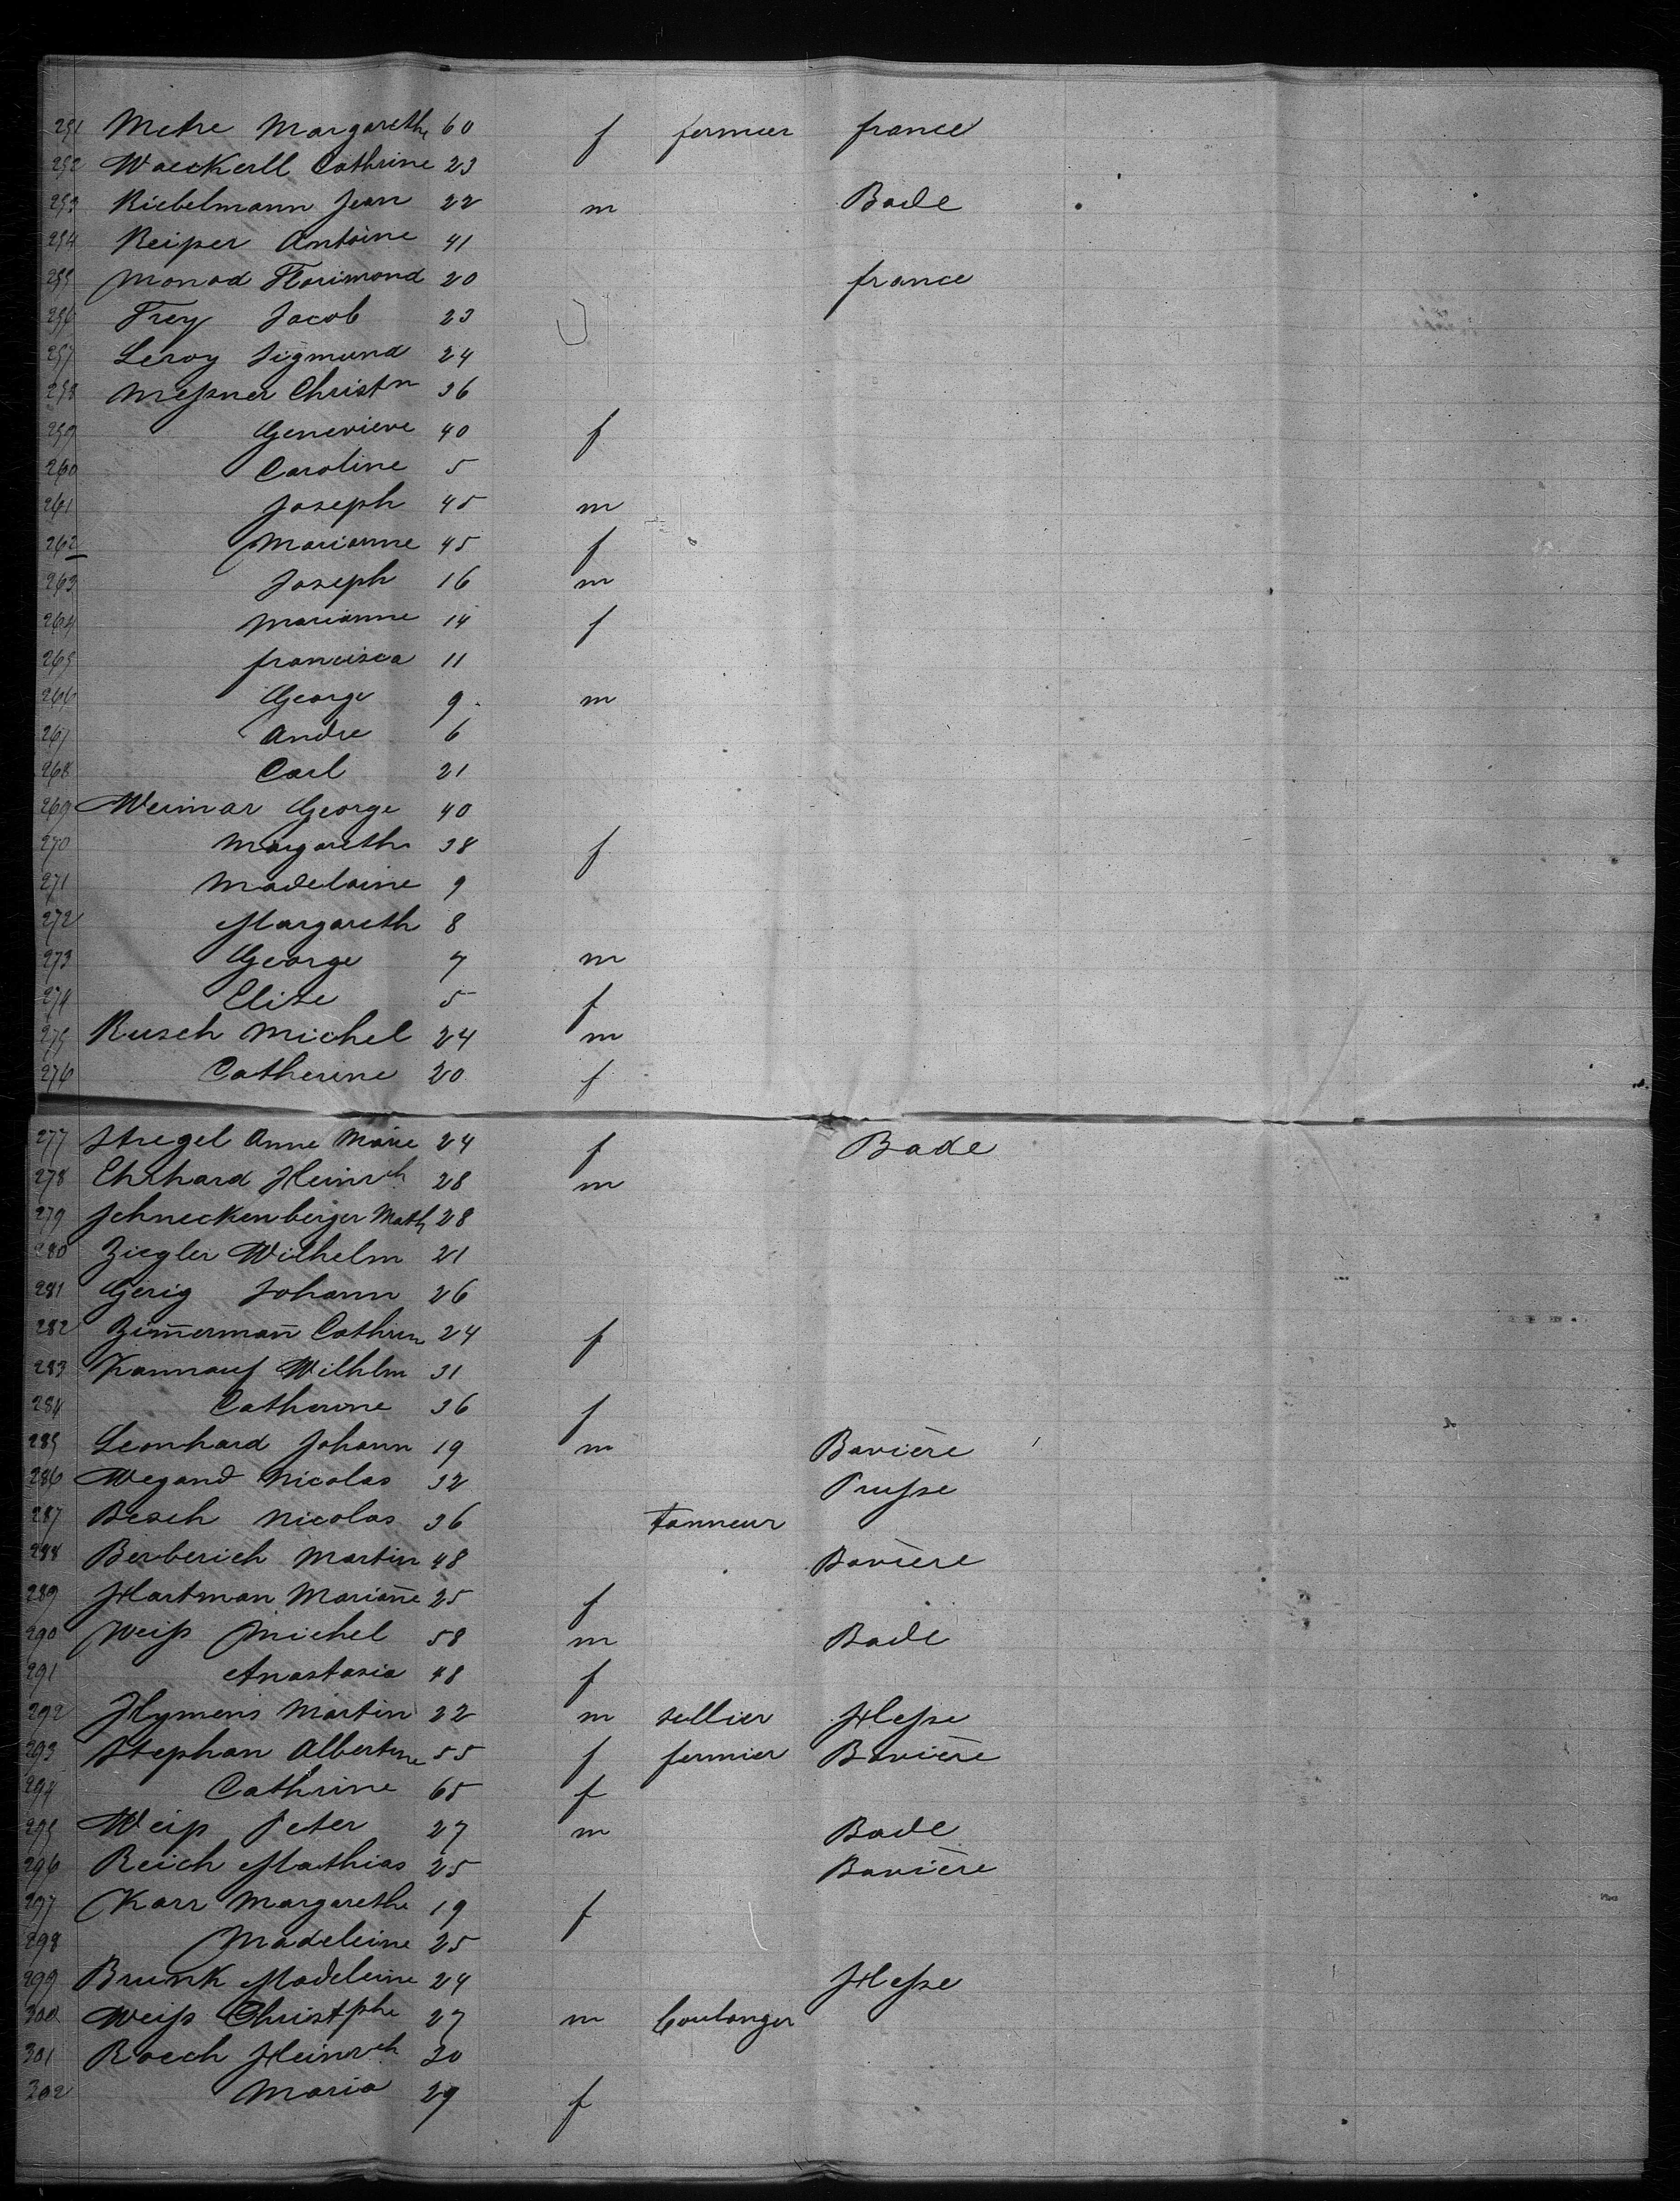 251 Metre Margarethe 60 f fermier france
252 Waeckerll Cathrine 23
253 Riebelmann Jean 22 m Bade
254 Reiper Antoine 41
255 Monod Florimond 20 france
256 Frey Jacob 23
257 Leroy Sigmund 24
258 Meſsner Christn 36
259 Genevieve 40 f
260 Caroline 5
261 Joseph 45 m
262 Marianne 45 f
263 Joseph 16 m
264 Marianne 14 f
265 francisca 11
266 George 9 m
267 Andre 6
268 Carl 21
269 Weimar George 40
270 Margareth 38 f
271 Madelaine 9
272 Margareth 8
273 George 7 m
274 Elise 5 f
275 Rusch Michel 24 m
276 Catherine 20 f
277 Stregel Anne Marie 24 f Bade
278 Ehrhard Heinrch 28 m
279 Schneckenberger Math 28
280 Ziegler Wilhelm 21
281 Gerig Johann 26
282 Zim̄erman̄ Cathrine 24 f
283 Kannauf Wilhlm 31
284 Catherine 36 f
285 Leonhard Johann 19 m Bavière
286 Wegand Nicolas 32 Pruſse
287 Besch Nicolas 36 tanneur
288 Berberich Martin 48 Bavière
289 Hartman Marian̄e 25 f
290 Weiſs Michel 58 m Bade
291 Anastasia 48 f
292 Hymens Martin 22 m sellier Heſse
293 Stephan Albertine 55 f fermier Bavière
294 Cathrine 65 f
295 Weiſs Peter 27 m Bade
296 Reich Mathias 25 Bavière
297 Karr Margarethe 19 f
298 Madeleine 25
299 Brunk Madeleine 24 Heſse
300 Weiſs Christphe 27 m boulanger
301 Roech Heinrch 30
302 Maria 29 f